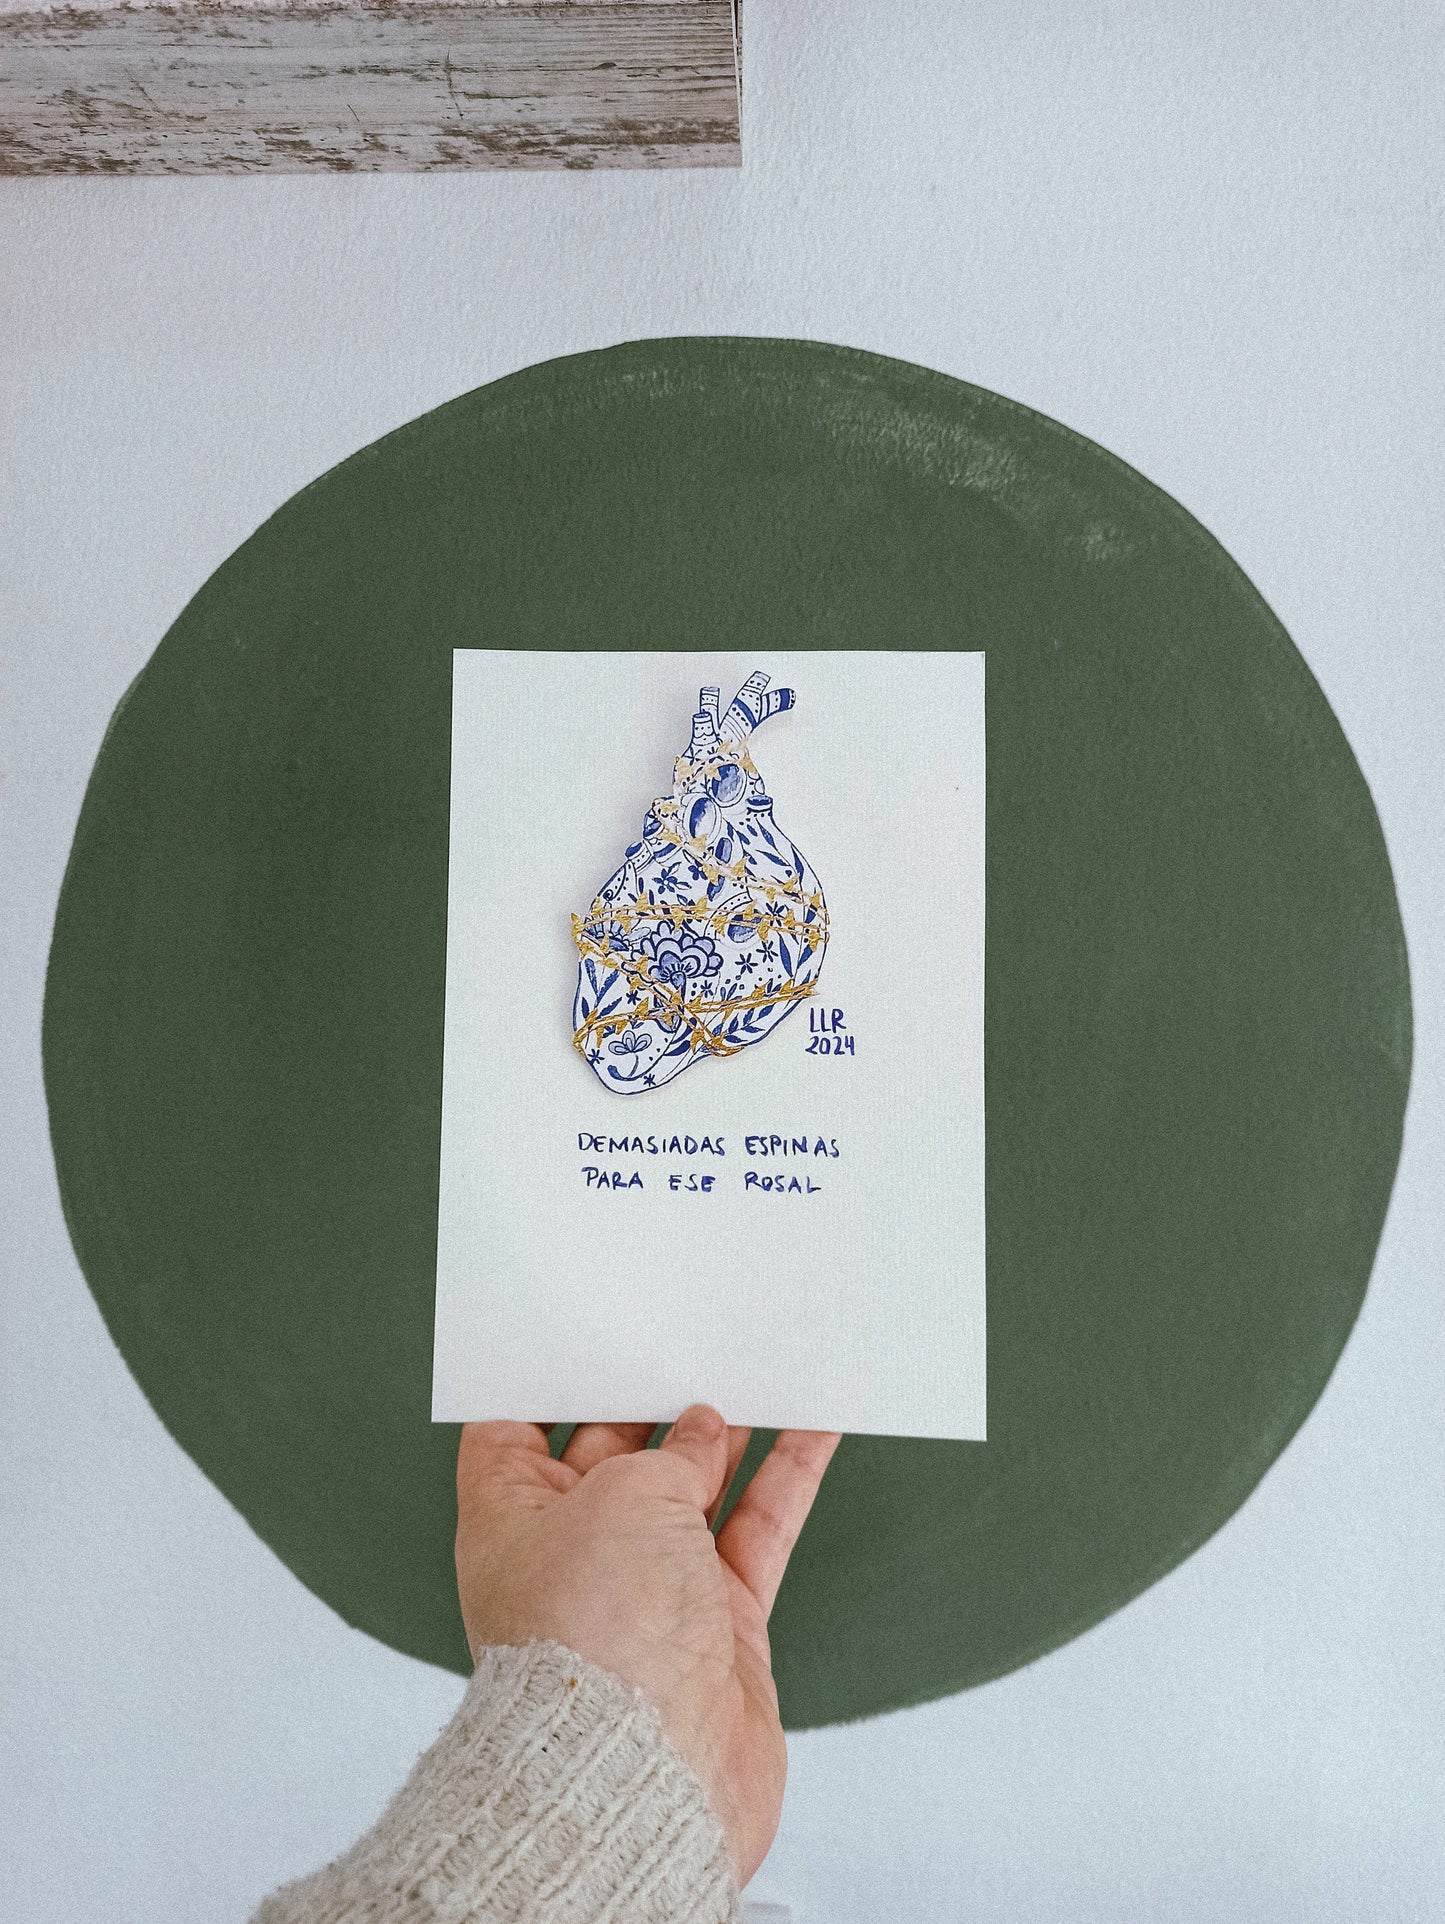 LLR
2024
DEMASIADAS ESPINAS
PARA ESE ROSAL